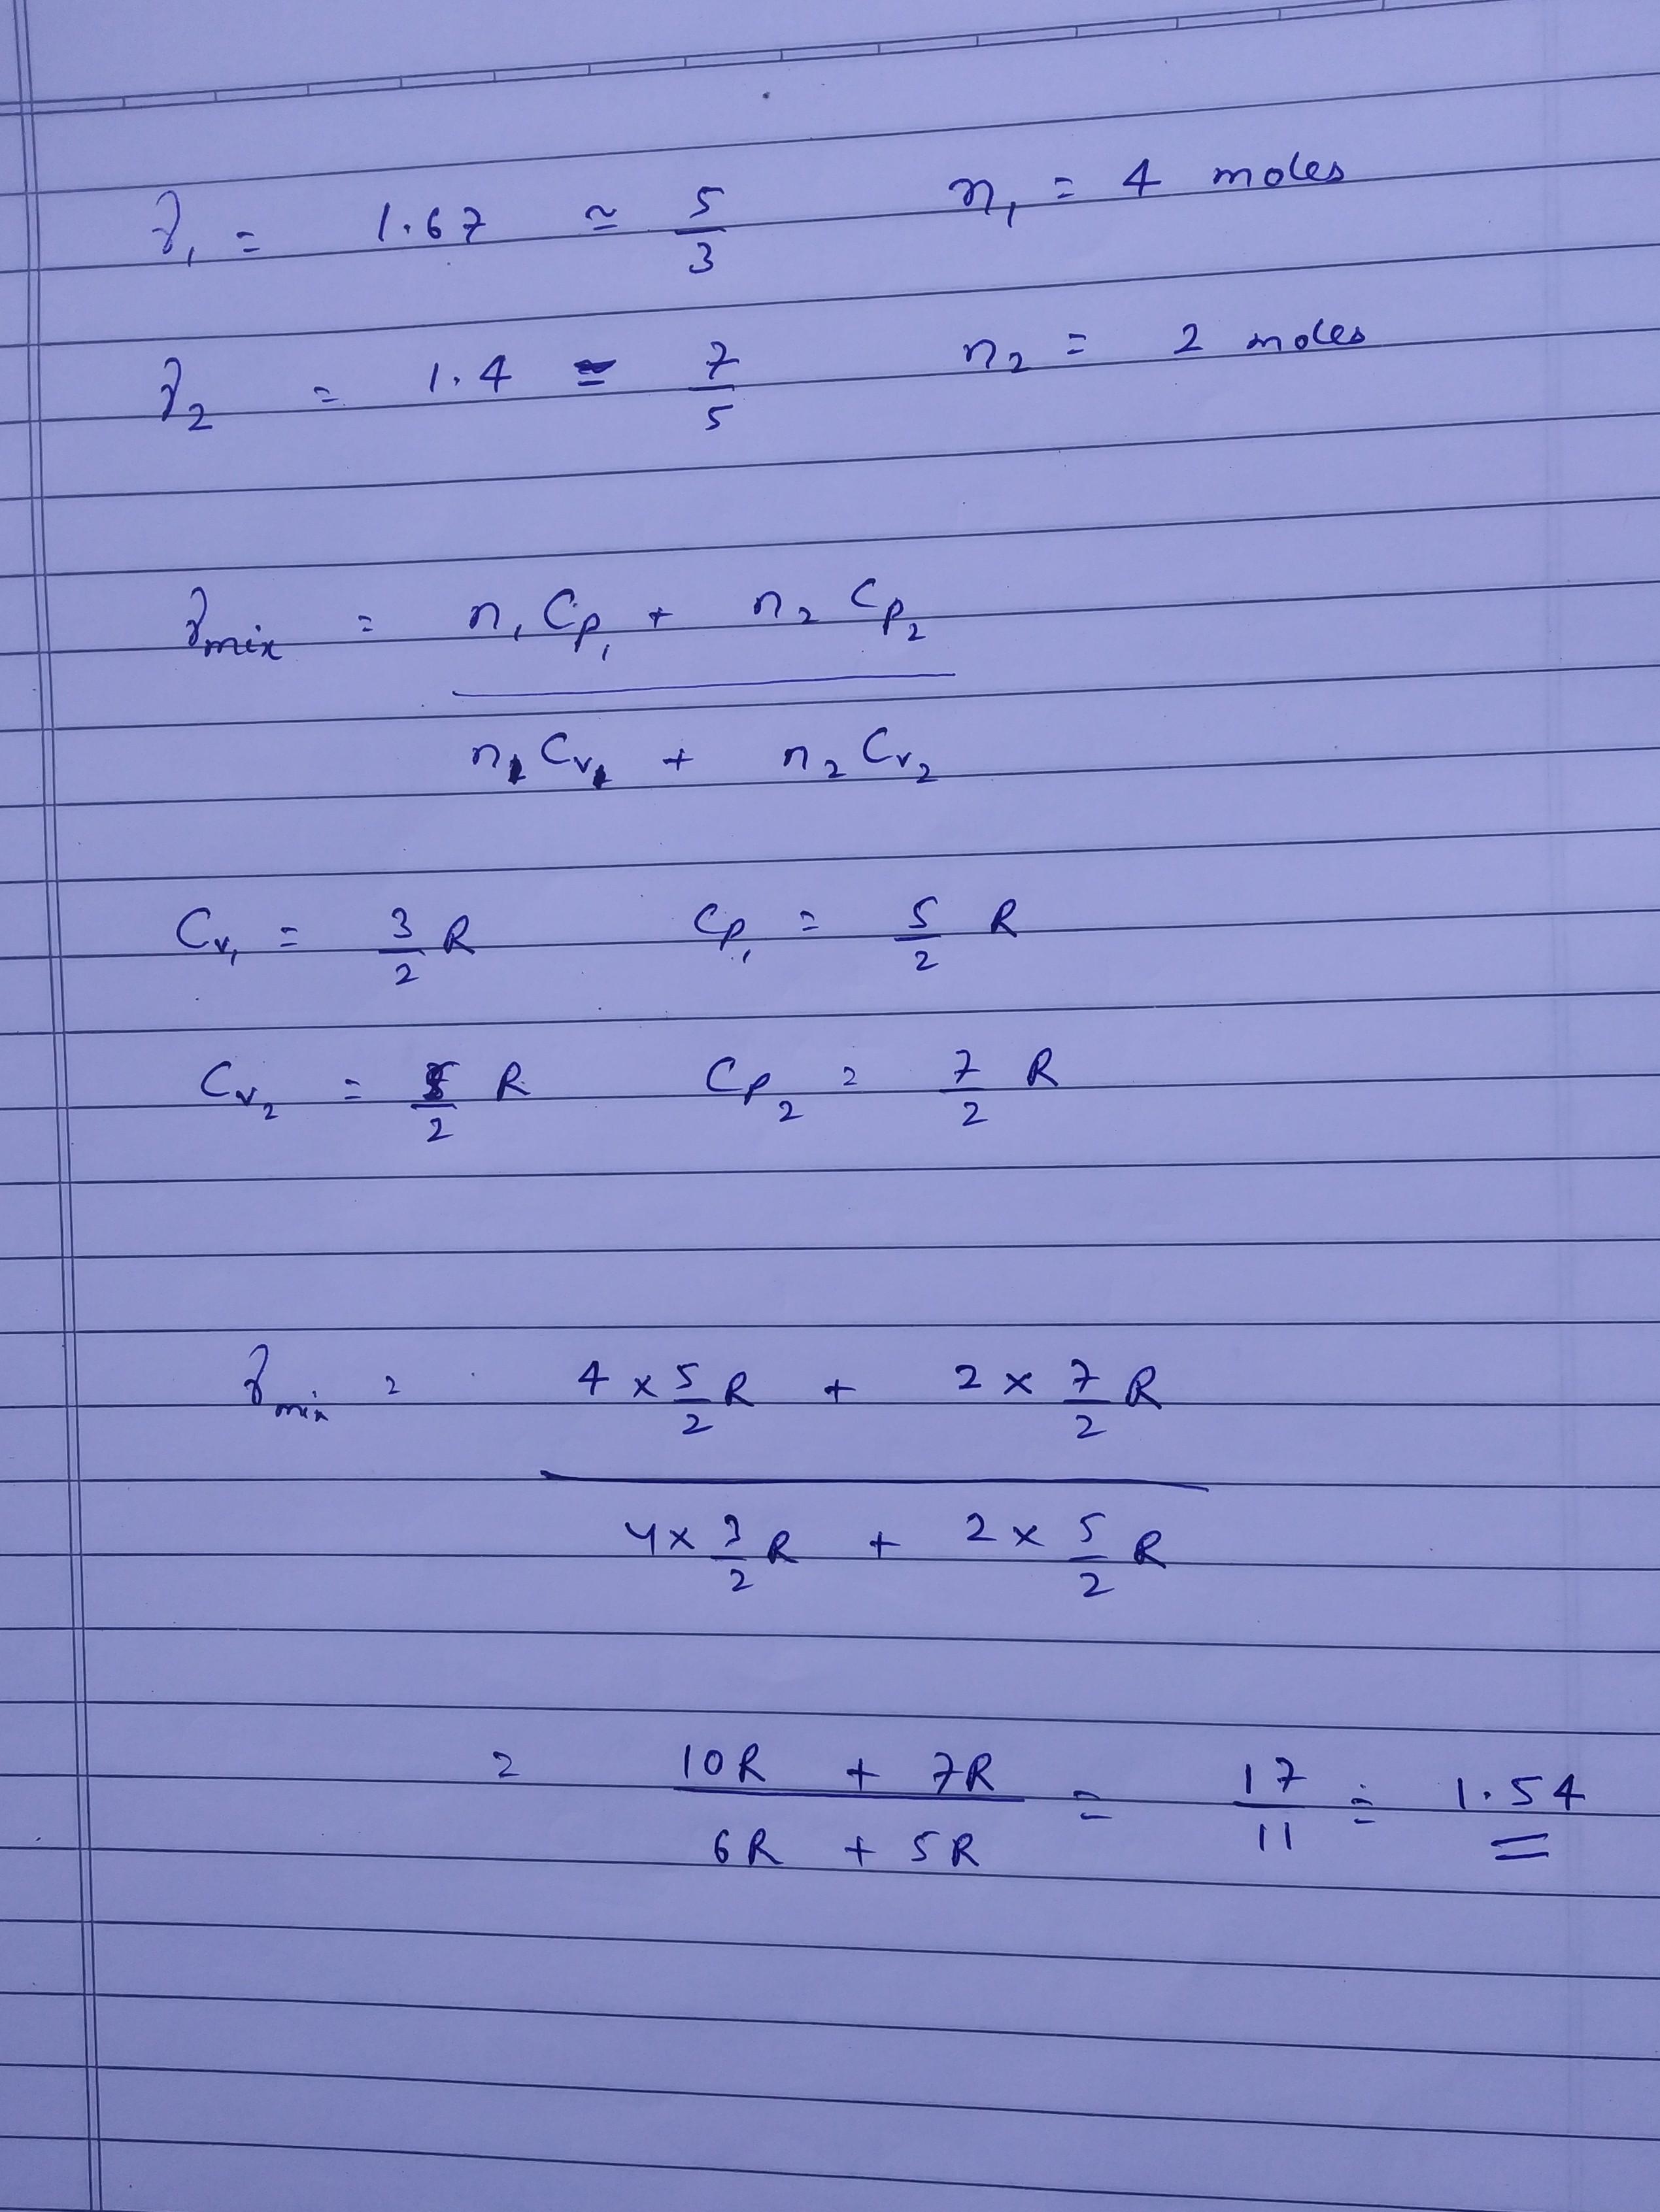 γ₁ = 1.67 ≃ 5/3 n₁ = 4 moles
γ₂ = 1.4 ≃ 7/5 n₂ = 2 moles
γmix = (n₁ Cp₁ + n₂ Cp₂) / (n₁ Cv₁ + n₂ Cv₂)
Cv₁ = 3/2 R Cp₁ = 5/2 R
Cv₂ = 5/2 R Cp₂ = 7/2 R
γmix = (4 × 5/2 R + 2 × 7/2 R) / (4 × 3/2 R + 2 × 5/2 R)
= (10R + 7R) / (6R + 5R) = 17/11 = 1.54